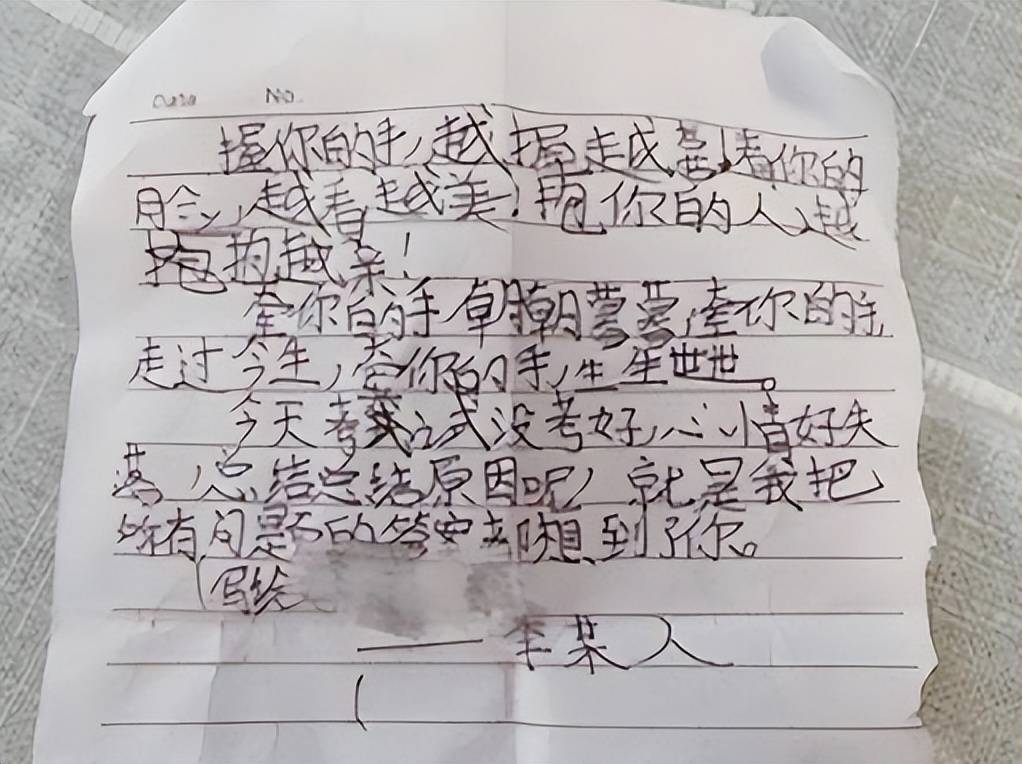 Date No.
握你的手,越握越成熟!看你的
脸,越看越美!抱你的人,越
抱越亲!
牵你的手朝朝暮暮,牵你的手,
走过今生,牵你的手,生生世世。
今天考试没考好,心情好失
落,总结总结原因呢,就是我把
所有问题的答案都想到了你。
(写给
——李某人
(